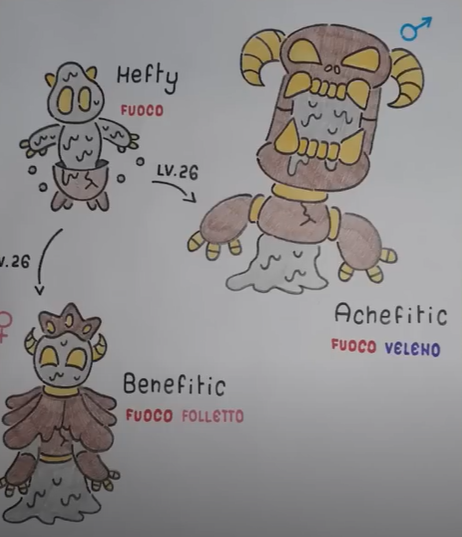 Hefty
FUOCO
LV.26
V.26
Achefitic
FUOCO VELENO
Benefitic
FUOCO FOLLETTO